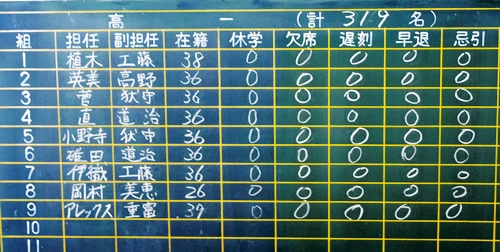 高 一 (計 319 名)
組 担任 副担任 在籍 休学 欠席 遅刻 早退 忌引
1 植木 工藤 38 0 0 0 0 0
2 英美 高野 36 0 0 0 0 0
3 菅 荻守 36 0 0 0 0 0
4 直 道治 36 0 0 0 0 0
5 小野寺 荻守 36 0 0 0 0 0
6 碓田 道治 36 0 0 0 0 0
7 伊織 工藤 36 0 0 0 0 0
8 岡村 美恵 26 0 0 0 0 0
9 アレックス 重富 39 0 0 0 0 0
10
11